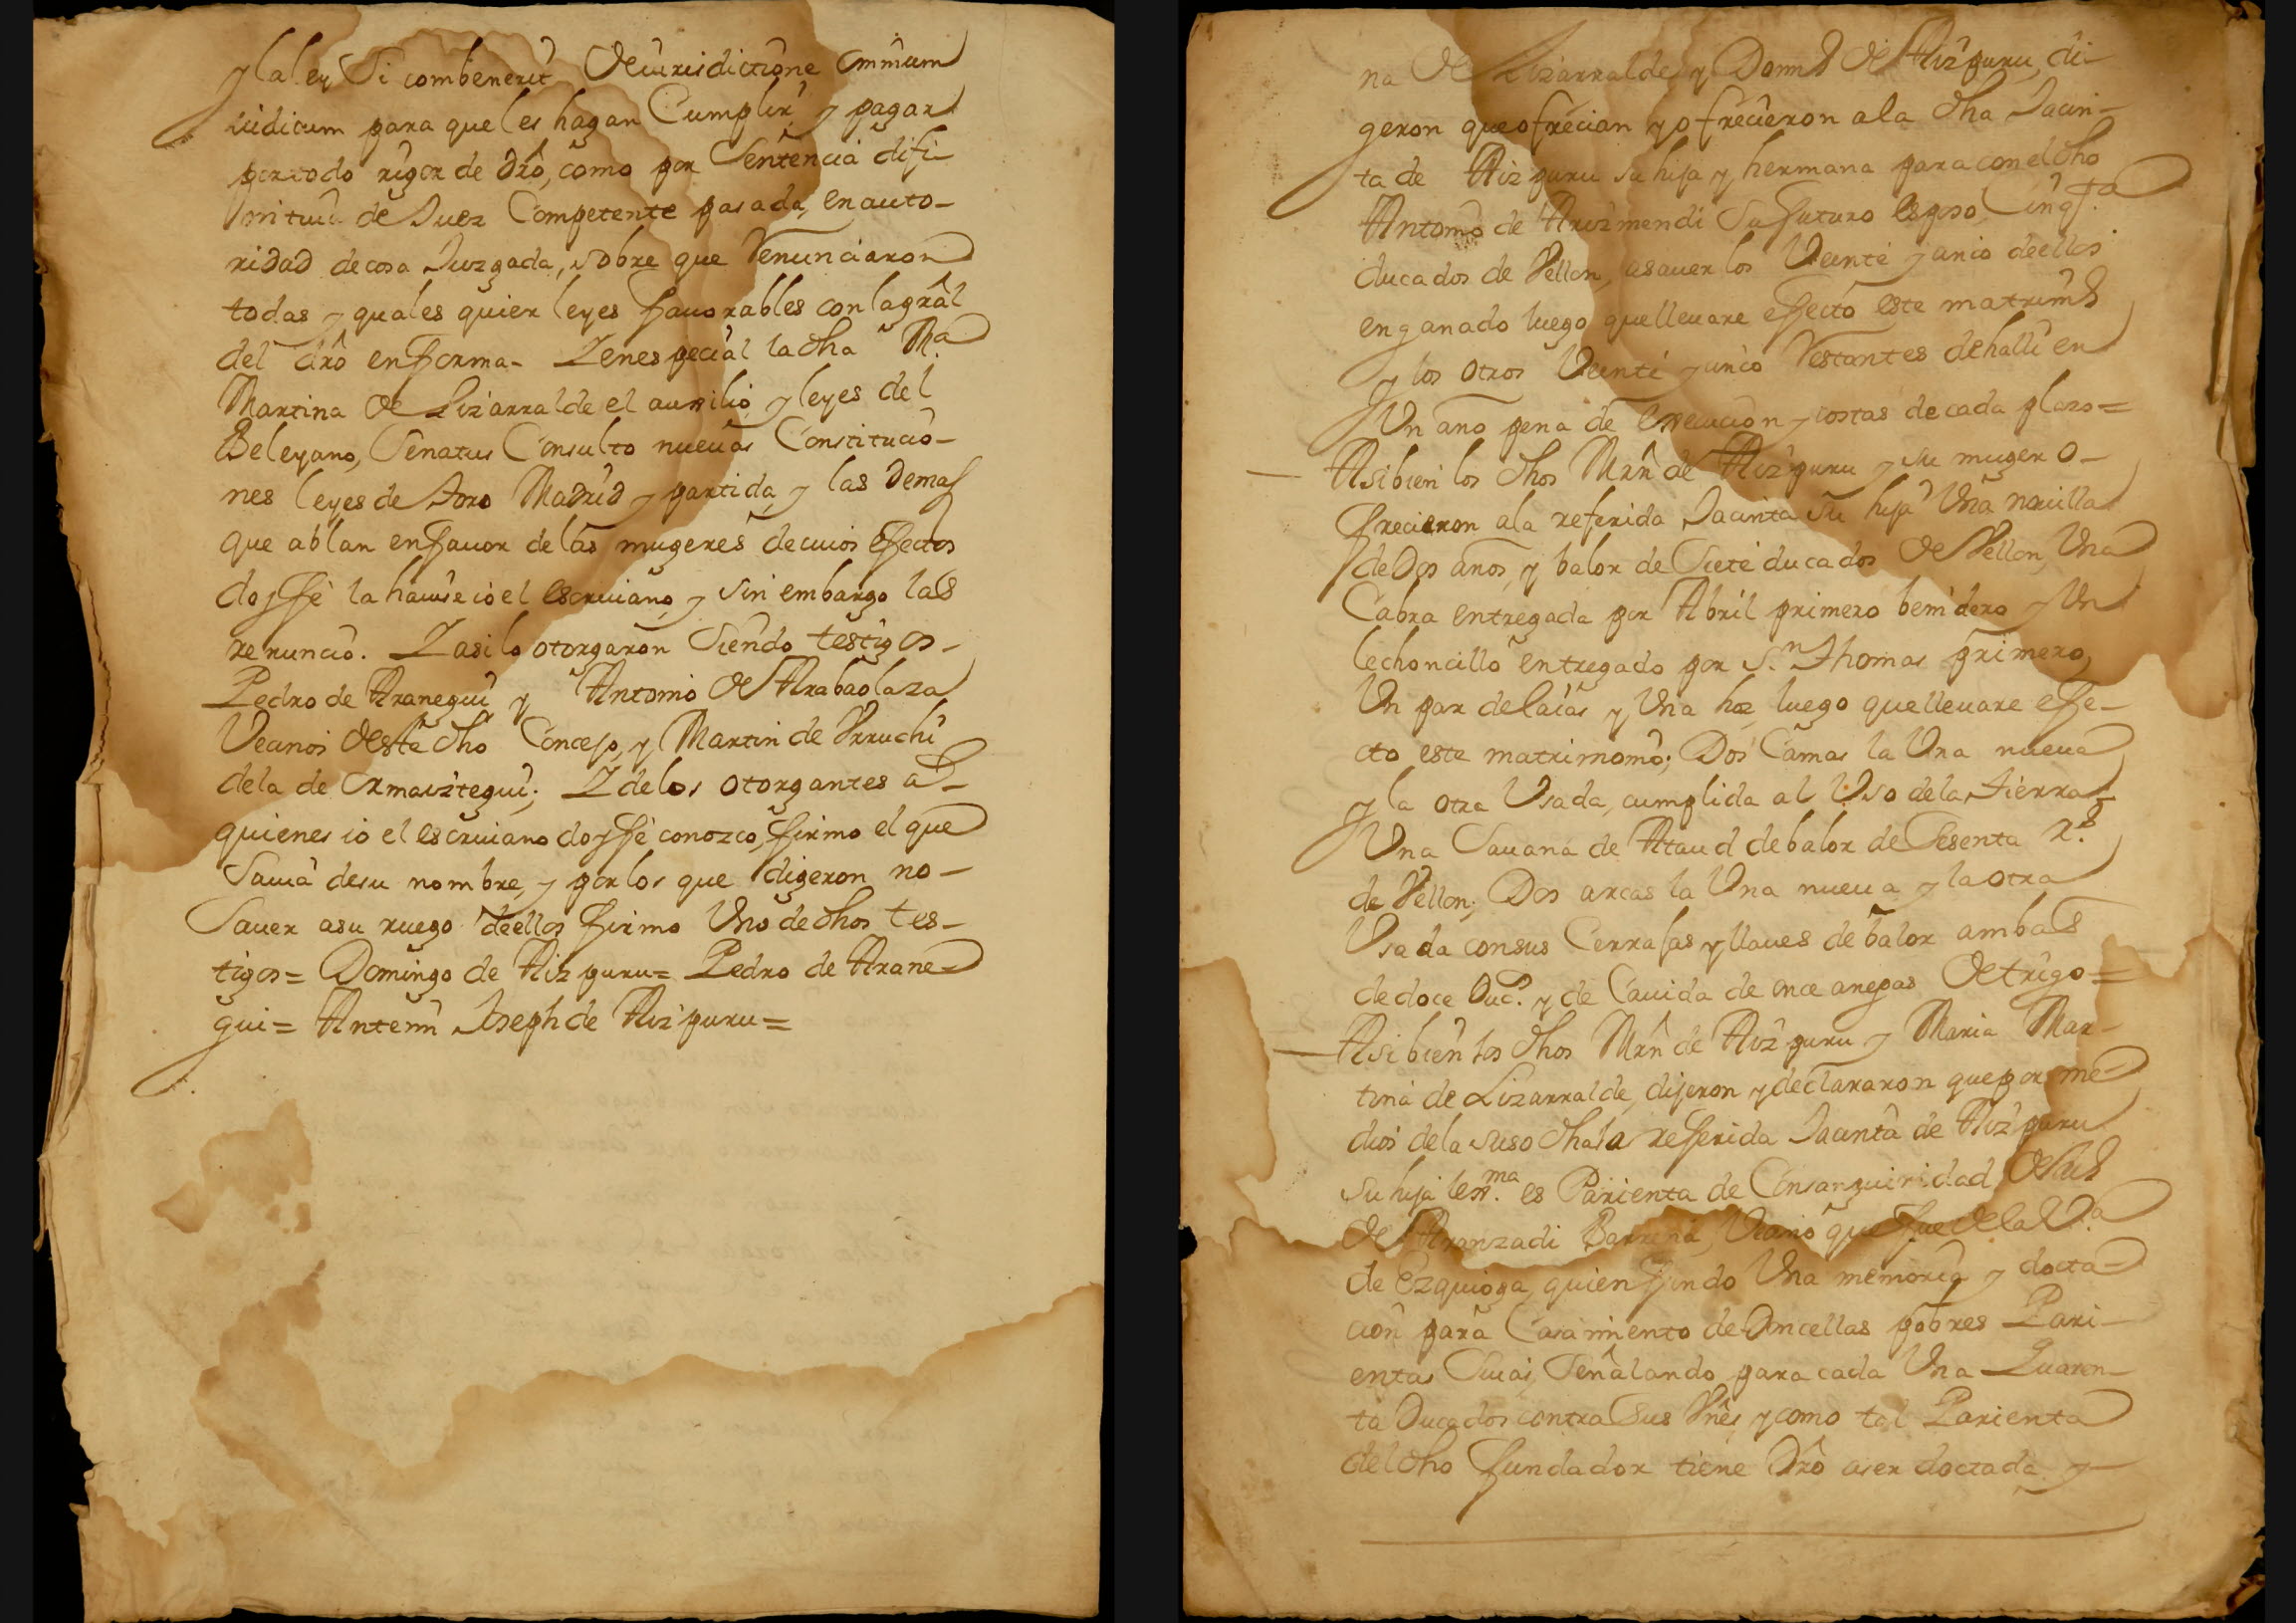 y la ley Si combenerit De iurisdictione omnium
iudicum para que les hagan Cumplir y pagar
por todo rigor de dro, como por Sentencia difi-
nitiua de Juez Competente pasada, en auto-
ridad de cosa Juzgada, sobre que Renunciaron
todas y quales quier leyes fauorables con la gral
del dro en forma- Y en especial la dha Ma.
Martina de Lizarralde el auxilio y leyes del
Beleyano, Senatus Consulto nueuas Constitucio-
nes leyes de toro Madrid y partida y las demas
que ablan en fauor de las mugeres de cuios efectos
doy ffe la hauise io el escriuano, y sin embargo las
renuncio. Y asi lo otorgaron Siendo testigos-
Pedro de Aranegui y Antonio de Arabaolaza
Vecinos de este dho Concejo, y Martin de Vrruchi
de la de Ormaiztegui; Y de los otorgantes a
quienes io el escriuano doy ffe conozco, firmo el que
Sauia de su nombre, y por los que digeron no-
Sauer a su ruego de ellos firmo Uno de dhos tes-
tigos= Domingo de Aizpuru= Pedro de Arane-
gui= Antemi Joseph de Aizpuru=
na de Lizarralde, y Domo de Aizpuru, di-
geron que ofrecian y ofrecieron a la dha Jacin-
ta de Aizpuru su hija y hermana para con el dho
Antonio de Arizmendi Su futuro esposo Cinqta
ducados de Vellon, asauer los Veinte y cinco de ellos
en ganado luego que lleuare effecto este matrimo
y los otros Veinti y cinco Restantes de halli en
Un año pena de execucion y costas de cada plazo=
Asi bien los dhos Mrn de Aizpuru y su muger o-
frecieron a la referida Jacinta Su hija Una nouilla
de Dos años, y balor de Siete ducados de Vellon, Una
Cabra entregada por Abril primero benidero y Un
lechoncillo entregado por Sn. Thomas primero,
Un par de laias y Una hoz luego que lleuare efe-
cto este matrimonio; Dos Camas la Una nueua
y la otra Usada, cumplida al Uso de la tierra
Una Sauana de Ataud de balor de Sesenta Rs.
de Vellon; Dos arcas la Una nueua y la otra
Usada con sus Cerrajas y llaues de balor ambas
de doce Duc.s y de Cauida de once anegas de trigo=
Asi bien los dhos Mrn de Aizpuru y Maria Mar-
tina de Lizarralde, dijeron y declararon que por me-
dios de la suso dha la referida Jacinta de Aizpuru
Su hija lexma. es Parienta de Consanguinidad
de Aranzadi Barrena, Vecino que fue de la Va.
de Ezquioga, quien fundo Una memoria y docta-
cion para Casamiento de Doncellas pobres Pari-
entas Suias, Señalando para cada Una Quaren-
ta Ducados contra Sus Vnes, y como tal Parienta
del dho fundador tiene Dro a ser doctada y